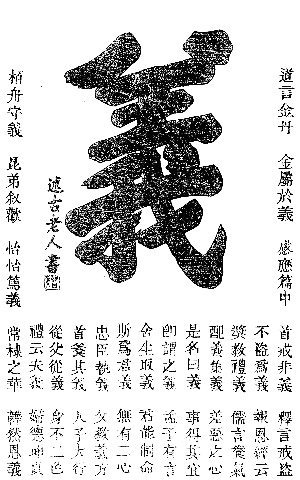 義
述古老人書
道言金丹 金屬於義 感應篇中
首戒非義 釋言戒盜
不盜爲義 報恩經云
救禮義 儒言養氣
配義集義 羞惡之心
是名曰義 事得其宜
即謂之義 孟子有言
舍生取義 君能制命
斯爲意義 無有二心
忠臣執義 父教義方
首其義 人子大行
從父從義 身不二色
禮云夫義 婦德唯貞
柏舟守義 昆弟叙歡 怡怡篤義
常棣之華 韡然恩義